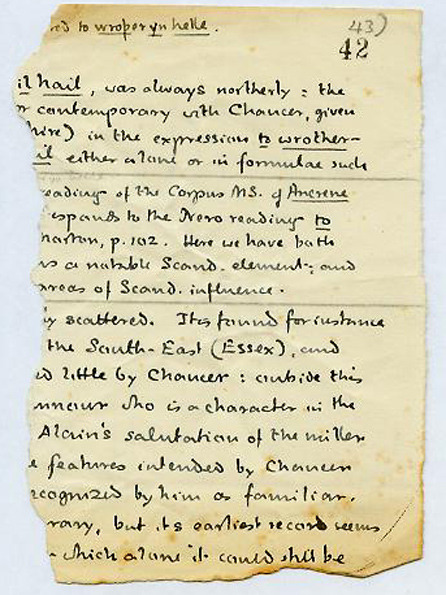 red to wroþer yn helle.
43)
42
il hail, was always northerly: the
r contemporary with Chaucer, given
hire) in the expression to wrother-
il either alone or in formulae such
reading of the Corpus MS. of Ancrene
esponds to the Nero reading to
Morton, p. 102. Here we have both
as a notable Scand. element; and
areas of Scand. influence.
ly scattered. It is found for instance
the South-East (Essex), and
ed little by Chaucer: outside this
who is a character in the
Alain's salutation of the miller
e features intended by Chaucer
recognized by him as familiar.
rary, but its earliest record seems
which alone it could still be